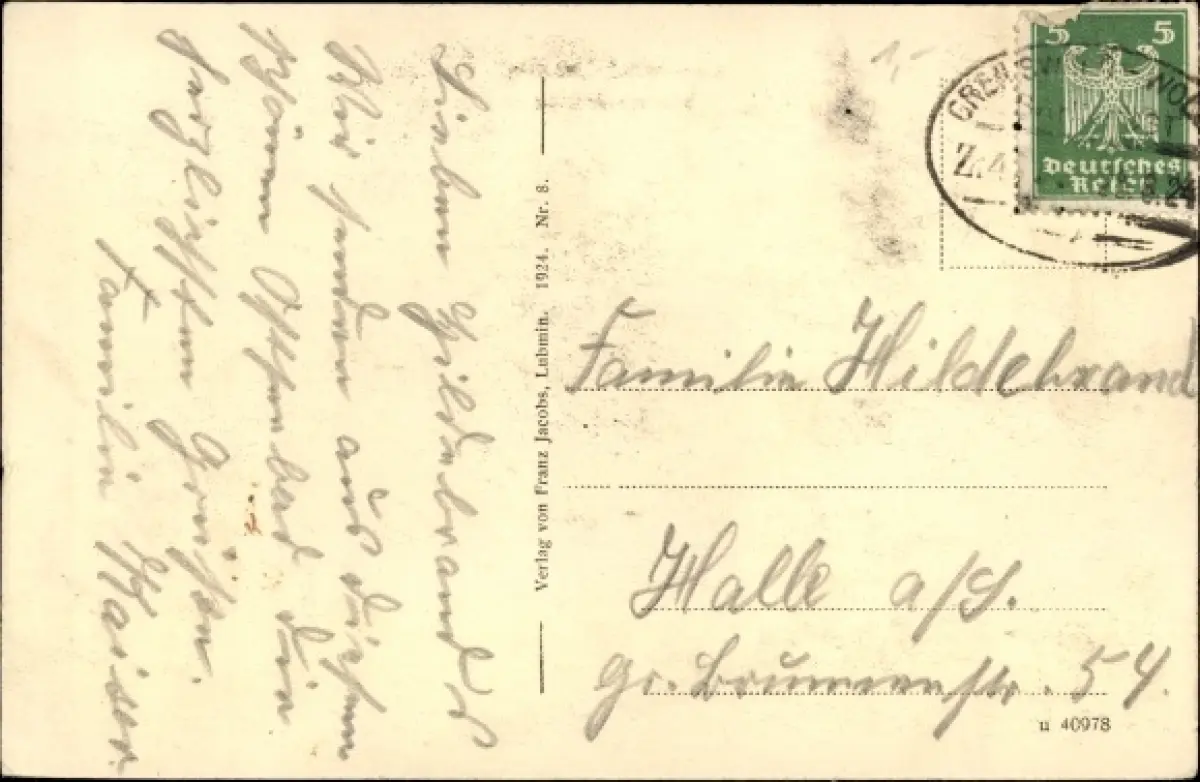 Lieben Hildebrands
Wir senden aus diesem
schönen Ostseebad die
herzlichsten Grüßen.
Familie
Verlag von Franz Jacobs, Lubmin. 1924. Nr. 8.
1,-
5 5
Deutsches
Reich
Z.4
8.24
Familie Hildebrand
Halle a/S.
gr. Brunnenstr. 54.
u 40978